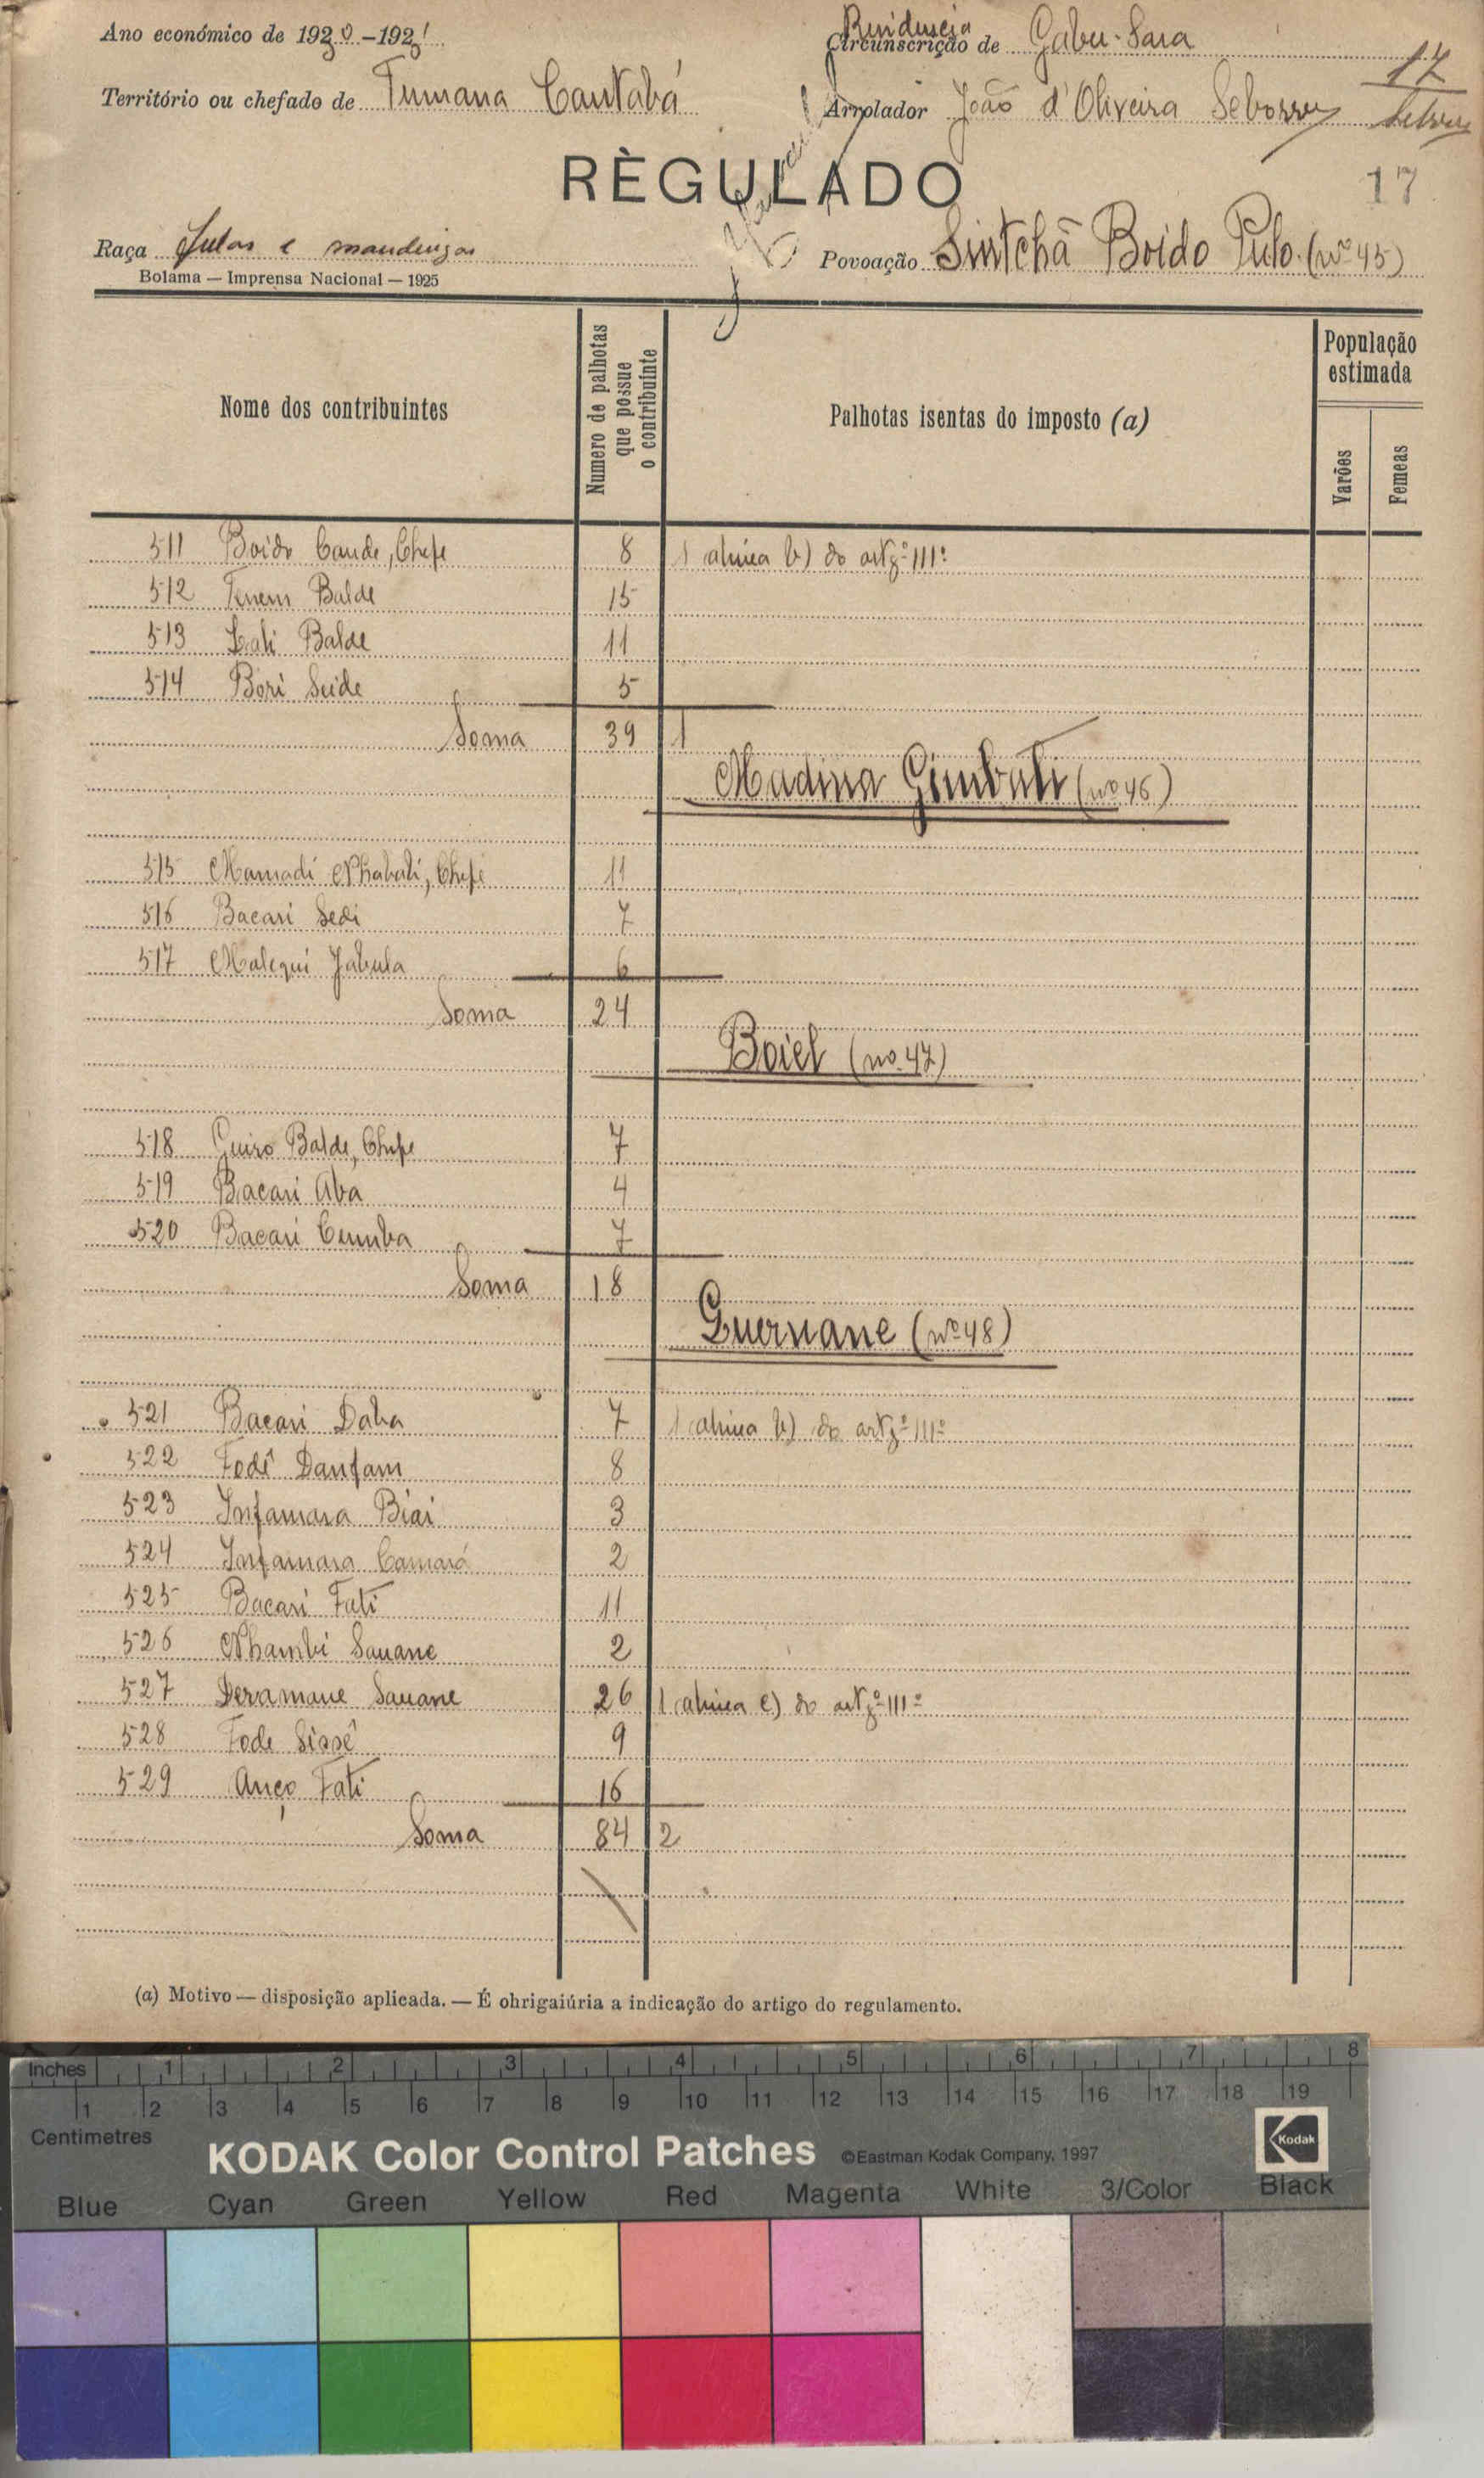 Ano económico de 1930-1931
Residencia
Circunscrição de Gabu-Sara
17
Território ou chefado de Tumana Cantabá
Arrolador João d'Oliveira
RÈGULADO
17
Raça Fulas e mandingas
Povoação Sintchã Boido Pulo (nº 45)
Bolama — Imprensa Nacional — 1925
Nome dos contribuintes
Numero de palhotas que possue o contribuinte
Palhotas isentas do imposto (a)
População estimada
Varões
Femeas
511 Boido Cande, Chefe 8 1 alinea b) do artgº 111º
512 Tenem Balde 15
513 Lali Balde 11
514 Bori Seide 5
Soma 39 1
Madina Gimbali (nº 46)
515 Mamadi Nhabali, Chefe 11
516 Bacari Sedi 7
517 Malequi Jabula 6
Soma 24
Boiel (nº 47)
518 Guiro Balde, Chefe 7
519 Bacari Aba 4
520 Bacari Cumba 7
Soma 18
Guernane (nº 48)
521 Bacari Daba 7 1 alinea b) do artgº 111º
522 Fodê Danfam 8
523 Infamara Biai 3
524 Infamara Camará 2
525 Bacari Fati 11
526 Nhambi Sauane 2
527 Deramane Sauane 26 1 alinea c) do artgº 111º
528 Fode Sissê 9
529 Anço Fati 16
Soma 84 2
(a) Motivo — disposição aplicada. — É ohrigaiúria a indicação do artigo do regulamento.
Inches 1 2 3 4 5 6 7 8
1 2 3 4 5 6 7 8 9 10 11 12 13 14 15 16 17 18 19
Centimetres
KODAK Color Control Patches ©Eastman Kodak Company, 1997 Kodak
Blue Cyan Green Yellow Red Magenta White 3/Color Black